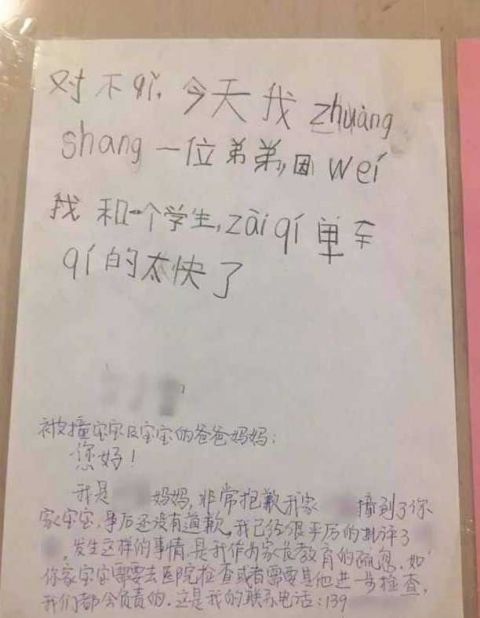 对不qǐ,今天我zhuàng
shang一位弟弟,因wéi
我和一个学生,zài qí单车
qí的太快了
被撞宝宝及宝宝的爸爸妈妈:
您好!
我是 妈妈,非常抱歉我家 撞到了你
家宝宝,事后还没有道歉,我已经很严厉的批评了
,发生这样的事情是我作为家长教育的疏忽,如
你家宝宝需要去医院检查或者需要其他进一步检查,
我们都会负责的,这是我的联系电话:139